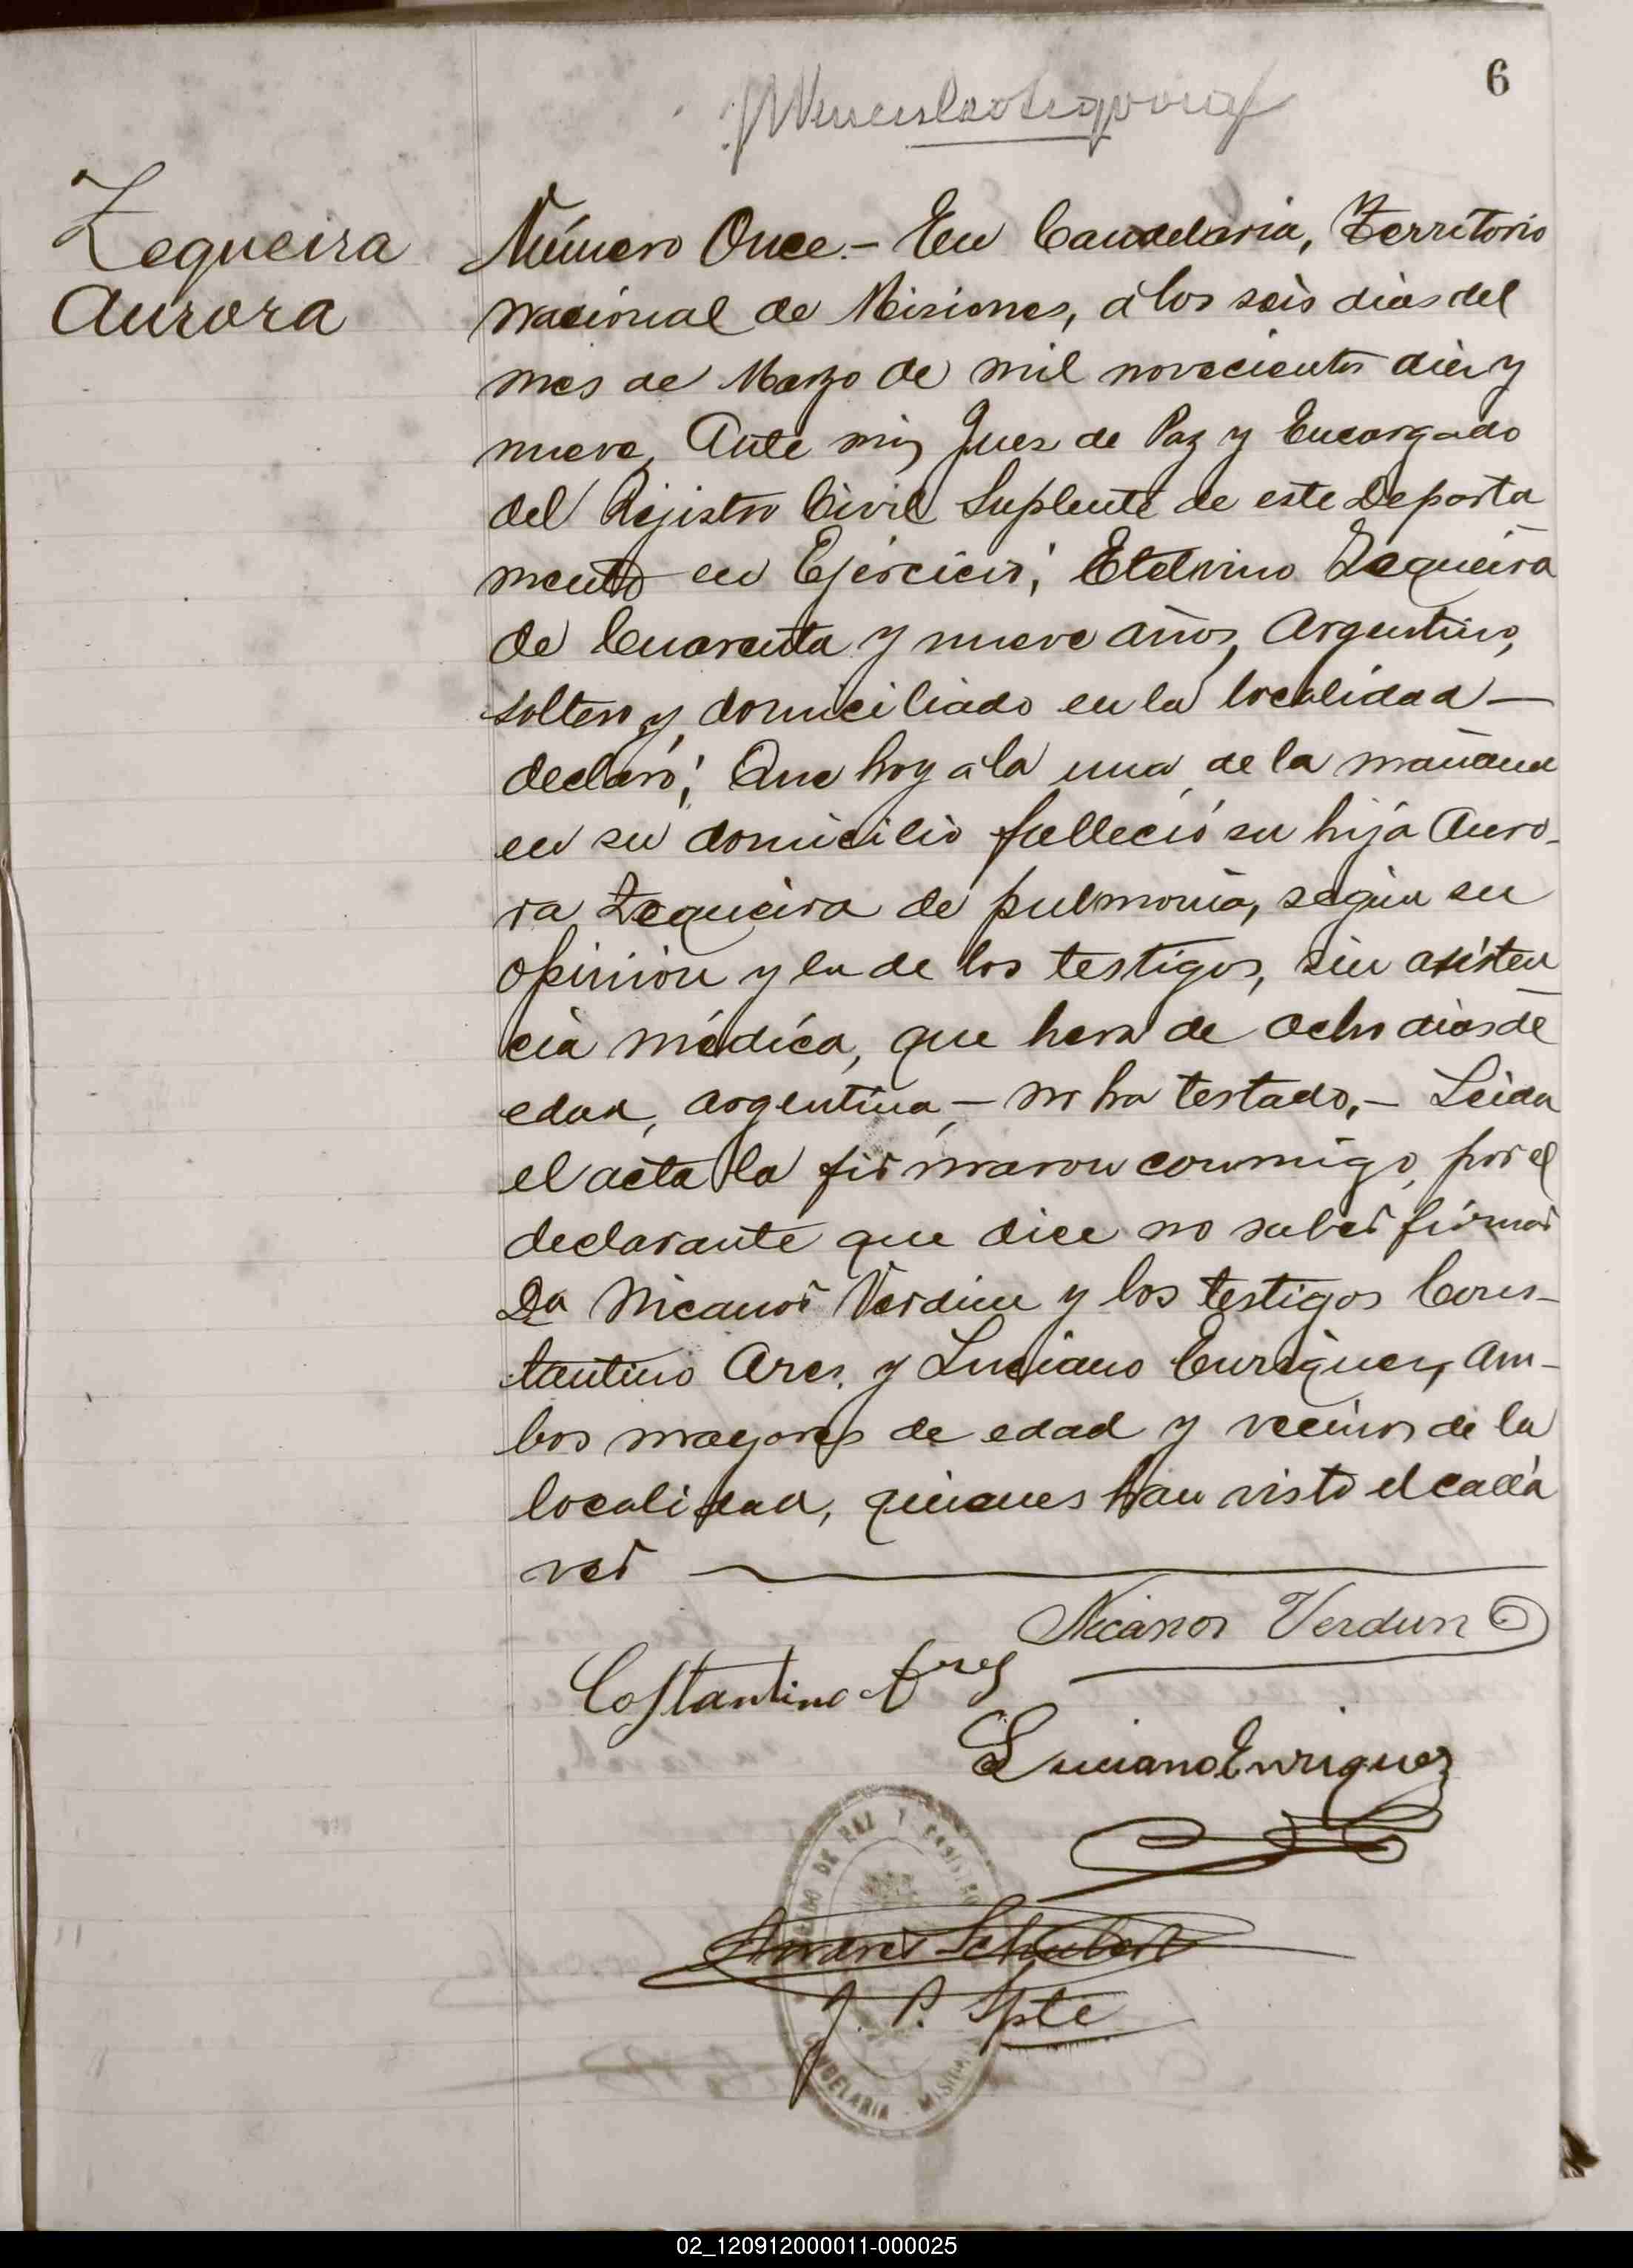 6
Zequeira
Aurora
Número Once.- En Candelaria, Territorio
nacional de Misiones, á los seis dias del
mes de Marzo de mil novecientos diez y
nueve, Ante mi, Juez de Paz y Encargado
del Rejistro Civil Suplente de este Departa
mento en Ejercicio; Etelvino Zequeira
de Cuarenta y nueve años, Argentino,
soltero y domiciliado en la localidad —
declaró; Que hoy á la una de la mañana
en su domicilio falleció su hija Auro-
ra Zequeira de pulmonia, según su
opinion y la de los testigos, sin asisten
cia médica, que hera de ocho dias de
edad, argentina, - no ha testado.- Leida
el acta la firmaron conmigo, por el
declarante que dice no saber firmar
Dn Nicanor Verdun y los testigos Cons-
tantino Ares, y Luciano Enriquez, am-
bos mayores de edad y vecinos de la
localidad, quienes han visto el cadá
ver
Nicanor Verdun
Costantino Ares
Luciano Enriquez
JUZGADO DE PAZ Y REGISTRO
Andres Schubert
J. P. Spte
CANDELARIA - MISIONES
02_120912000011-000025